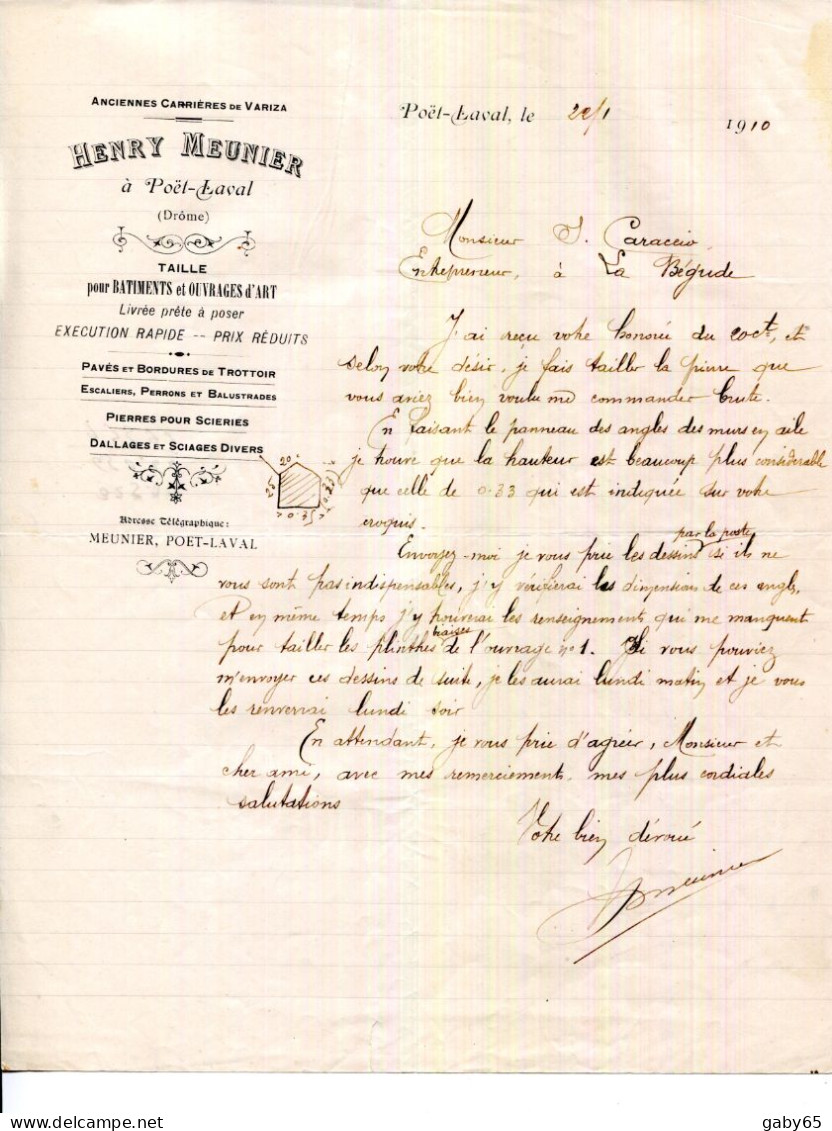 ANCIENNES CARRIÈRES DE VARIZA
HENRY MEUNIER
à Poët-Laval
(Drôme)
TAILLE
pour BATIMENTS et OUVRAGES d'ART
Livrée prête à poser
EXECUTION RAPIDE -- PRIX RÉDUITS
PAVÉS ET BORDURES DE TROTTOIR
ESCALIERS, PERRONS ET BALUSTRADES
PIERRES POUR SCIERIES
DALLAGES ET SCIAGES DIVERS
Adresse Télégraphique:
MEUNIER, POET-LAVAL
Poët-Laval, le 22/1 1910
Monsieur J. Caraccio
Entrepreneur, à La Bégude
J'ai reçu votre honoré du coct, et
selon votre désir, je fais tailler la pierre que
vous aviez bien voulu me commander brute.
En faisant le panneau des angles des murs en aile
je trouve que la hauteur est beaucoup plus considérable
que celle de 0.33 qui est indiquée sur votre
croquis.
20
Envoyez-moi je vous prie les dessins par la poste si ils ne
vous sont pas indispensables, j'y vérifierai les dimensions de ces angles,
et en même temps j'y trouverai les renseignements qui me manquent
pour tailler les plinthes de l'ouvrage n° 1. Si vous pouviez
m'envoyer ces dessins de suite, je les aurai lundi matin et je vous
les renverrai lundi soir
En attendant, je vous prie d'agréer, Monsieur et
cher ami, avec mes remerciements mes plus cordiales
salutations
Votre bien dévoué
HMeunier
gaby65